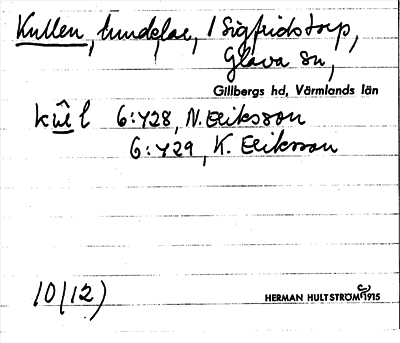 Kullen, hundelag, / Sigfridstorp,
Glava sn,
Gillbergs hd, Värmlands län
kûl 6:428, N. Eriksson
6:429, K. Eriksson
10(12)
HERMAN HULTSTRÖM 1915